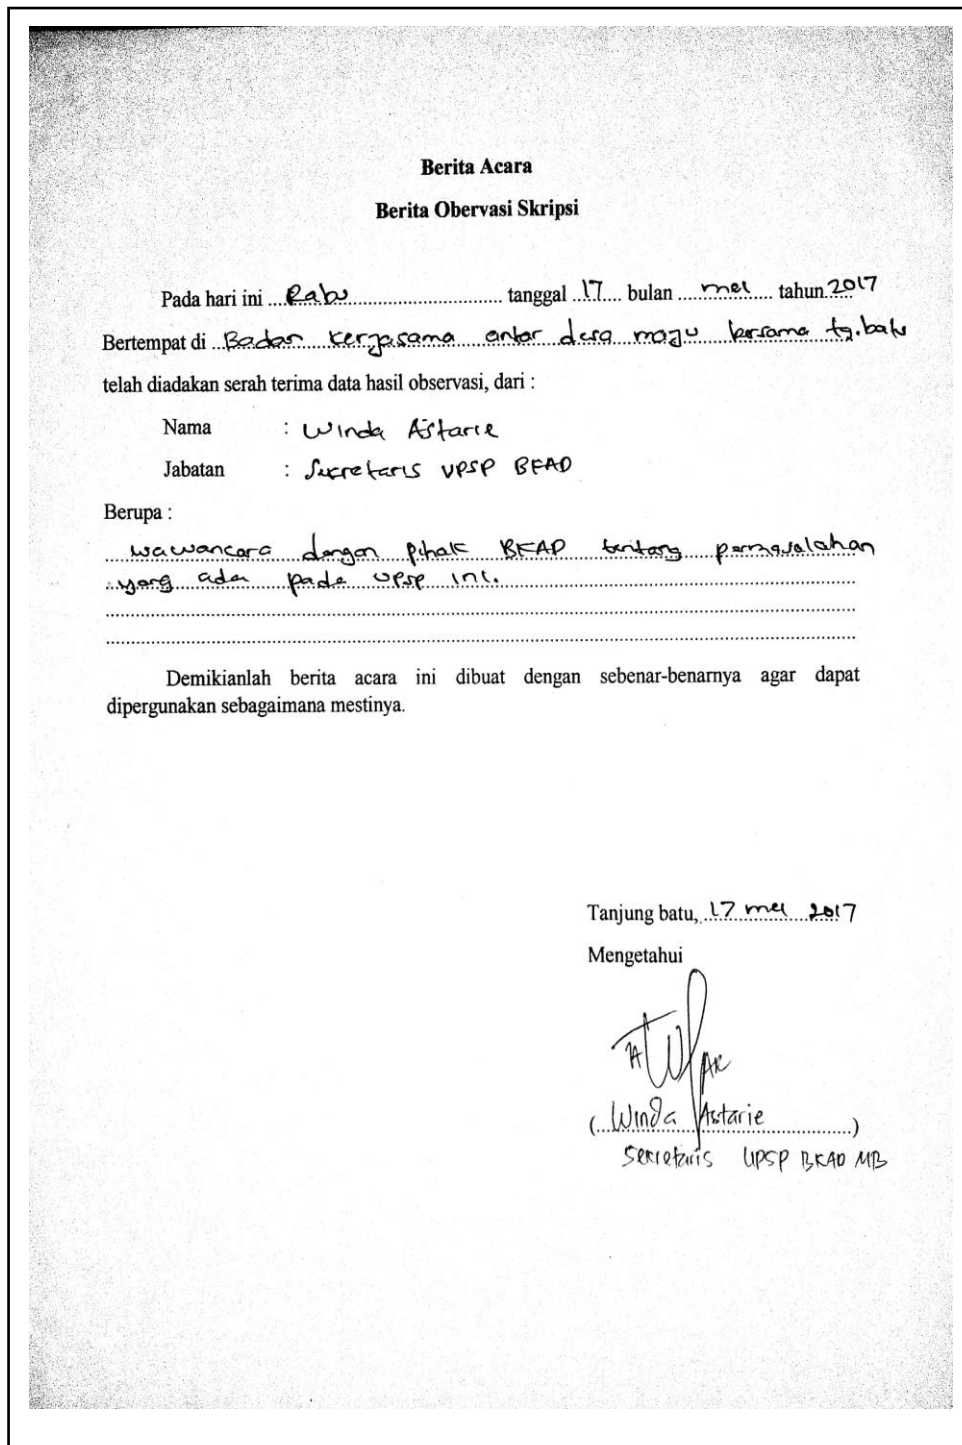 Berita Acara
Berita Obervasi Skripsi
Pada hari ini Rabu tanggal 17 bulan mei tahun 2017
Bertempat di Badan kerjasama antar desa maju bersama tg.batu
telah diadakan serah terima data hasil observasi, dari :
Nama : Winda Astarie
Jabatan : Sekretaris UPSP BKAD
Berupa :
wawancara dengan pihak BKAD tentang permasalahan
yang ada pada UPSP ini.
Demikianlah berita acara ini dibuat dengan sebenar-benarnya agar dapat
dipergunakan sebagaimana mestinya.
Tanjung batu, 17 mei 2017
Mengetahui
(Winda Astarie)
Sekretaris UPSP BKAD MB